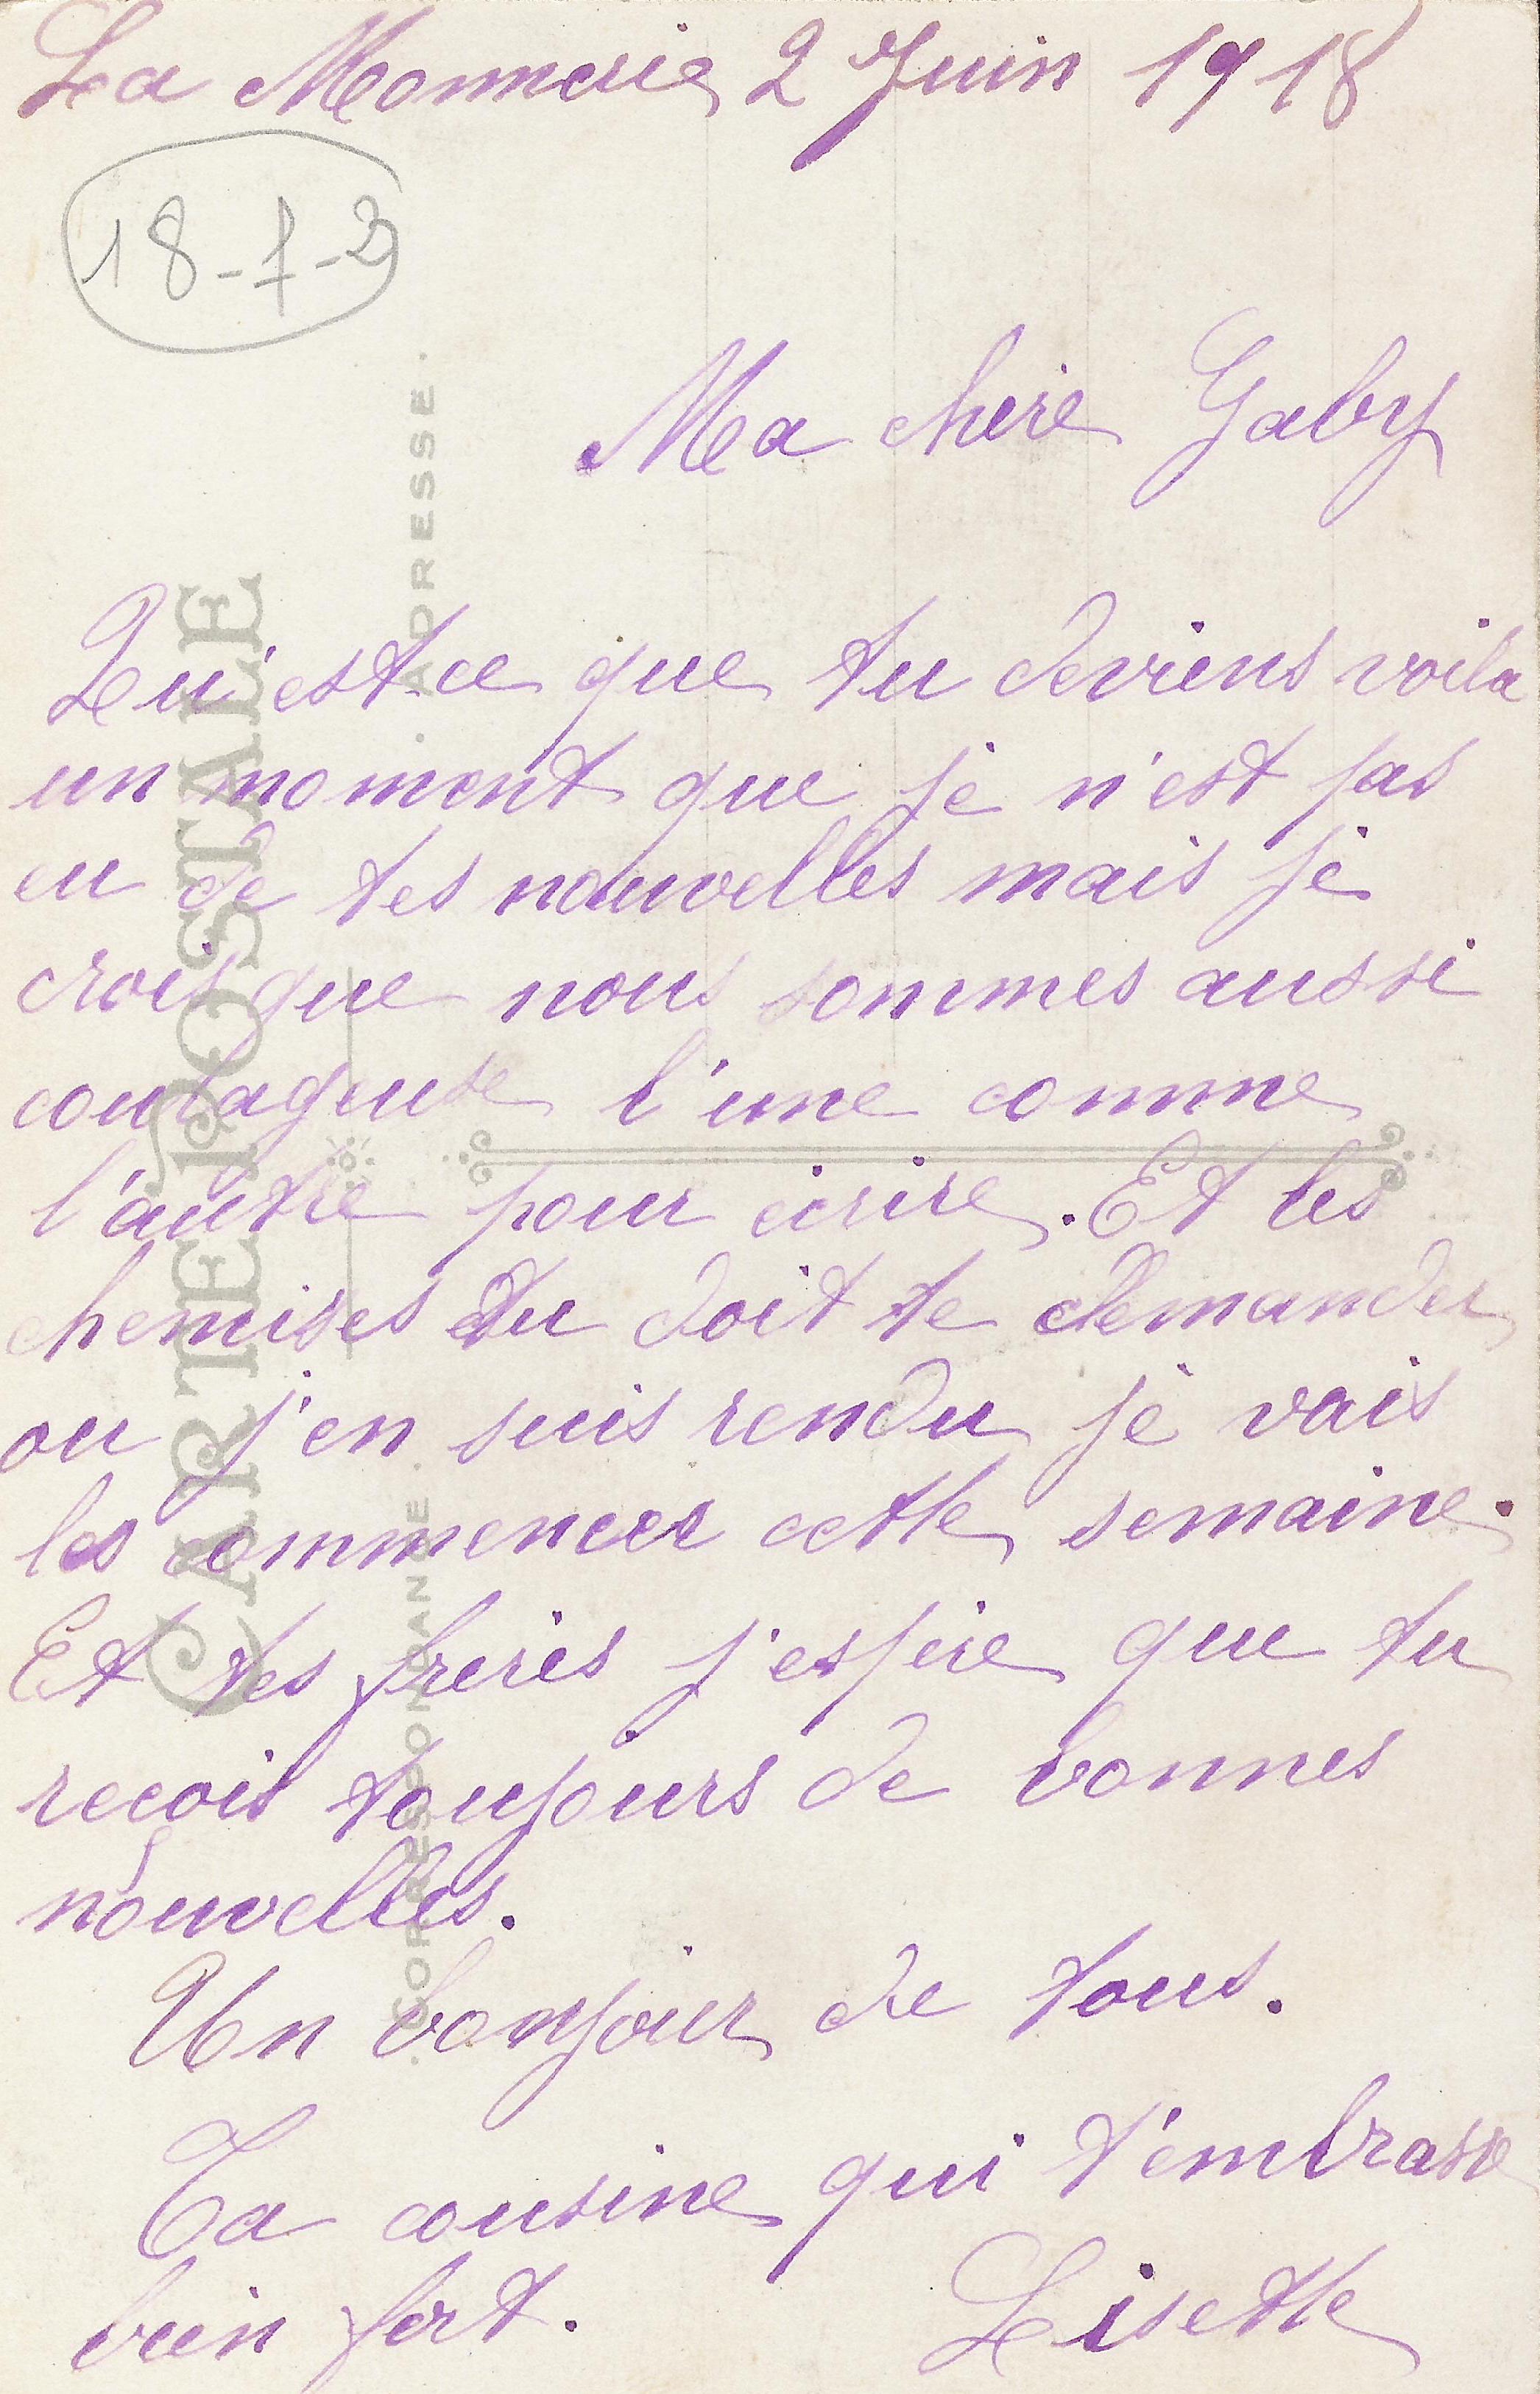 La Monnerie 2 Juin 1918
18-7-2
Ma chère Gaby
Qu'est ce que tu deviens voila
un moment que je n'est pas
eu de tes nouvelles mais je
crois que nous sommes aussi
courageuse l'une comme
l'autre pour écrire. Et les
chemises tu doit te demander
ou j'en suis rendu je vais
les commencer cette semaine.
Et tes frères j'espère que tu
reçois toujours de bonnes
nouvelles.
Un bonjour de tous.
Ta cousine qui t'embrasse
bien fort. Lisette
CARTE POSTALE
CORRESPONDANCE. . ADRESSE.